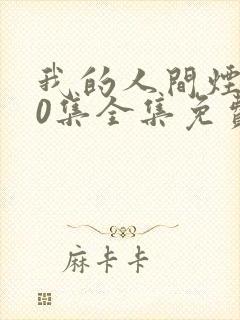 我的人間煙
0集全集免費
麻卡卡